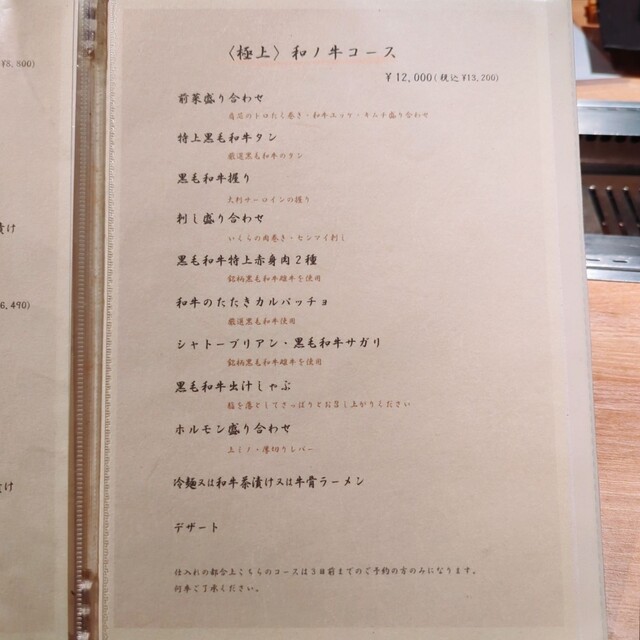 〈極上〉和ノ牛コース
¥12,000(税込¥13,200)
前菜盛り合わせ
のトロたく巻き・和牛ユッケ・キムチ盛り合わせ
特上黒毛和牛タン
厳選黒毛和牛のタン
黒毛和牛握り
大判サーロインの握り
刺し盛り合わせ
いくらの肉巻き・センマイ刺し
黒毛和牛特上赤身肉2種
銘柄黒毛和牛雌牛を使用
和牛のたたきカルパッチョ
厳選黒毛和牛使用
シャトーブリアン・黒毛和牛サガリ
銘柄黒毛和牛雌牛を使用
黒毛和牛出汁しゃぶ
脂を落としてさっぱりとお召し上がりください
ホルモン盛り合わせ
上ミノ・厚切りレバー
冷麺又は和牛茶漬け又は牛骨ラーメン
デザート
仕入れの都合上こちらのコースは3日前までのご予約の方のみになります。
何卒ご了承ください。
¥8,800)
漬け
6,490)
け